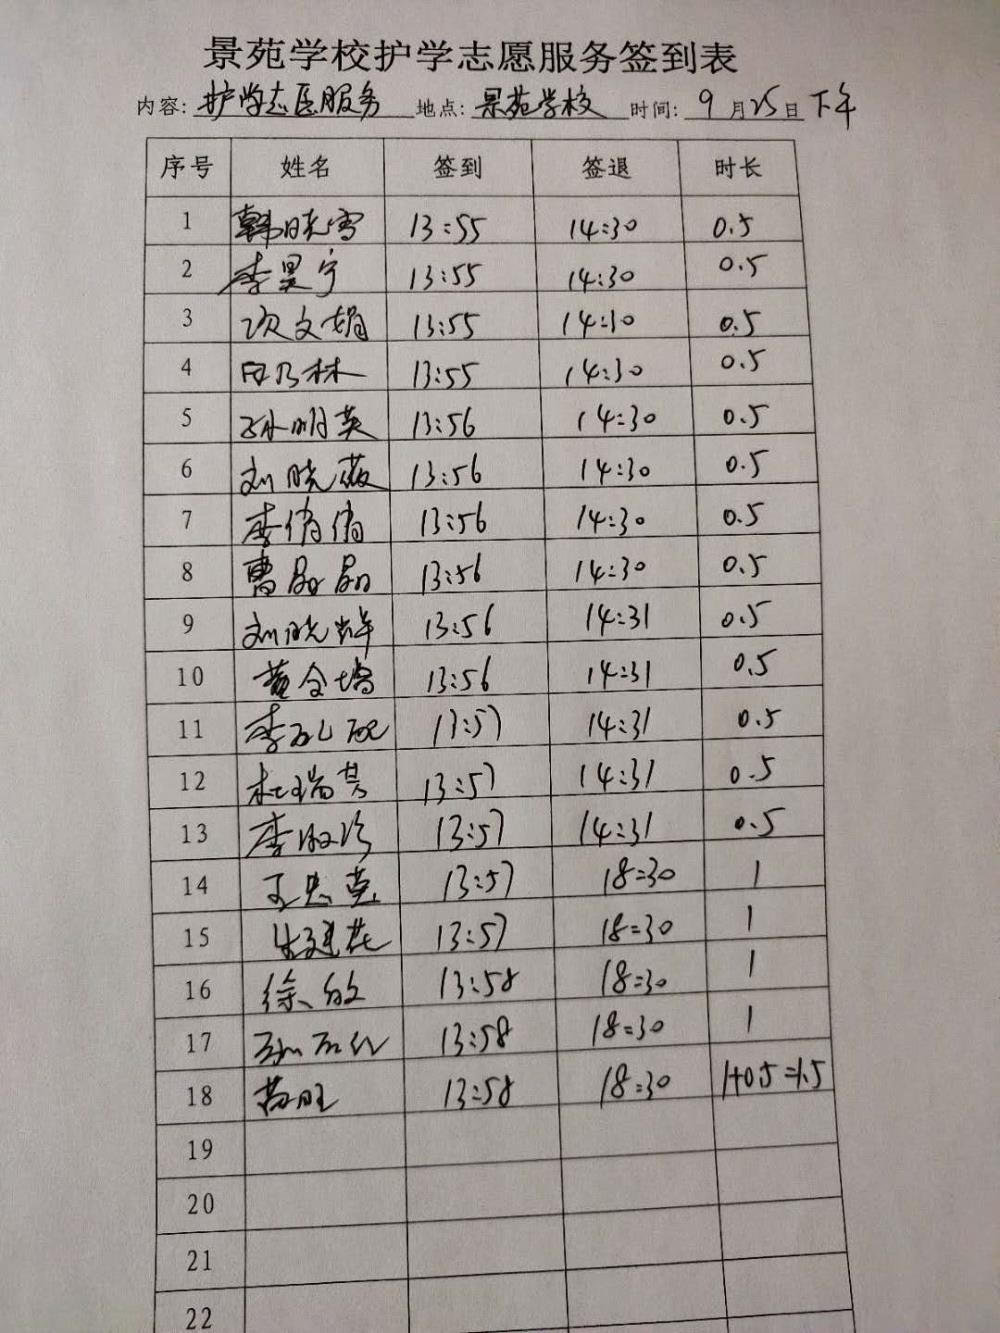 景苑学校护学志愿服务签到表
内容: 护学志愿服务 地点: 景苑学校 时间: 9月25日下午
序号 姓名 签到 签退 时长
1 韩晓雪 13:55 14:30 0.5
2 李昊宁 13:55 14:30 0.5
3 次文娟 13:55 14:30 0.5
4 田乃林 13:55 14:30 0.5
5 孙明英 13:56 14:30 0.5
6 刘晓薇 13:56 14:30 0.5
7 李俏俏 13:56 14:30 0.5
8 曹晶晶 13:56 14:30 0.5
9 刘晓 13:56 14:31 0.5
10 黄金 13:56 14:31 0.5
11 李 13:57 14:31 0.5
12 杜瑞其 13:57 14:31 0.5
13 李淑珍 13:57 14:31 0.5
14 王忠英 13:57 18:30 1
15 朱建花 13:57 18:30 1
16 徐敏 13:58 18:30 1
17 13:58 18:30 1
18 13:58 18:30 1+0.5=1.5
19
20
21
22